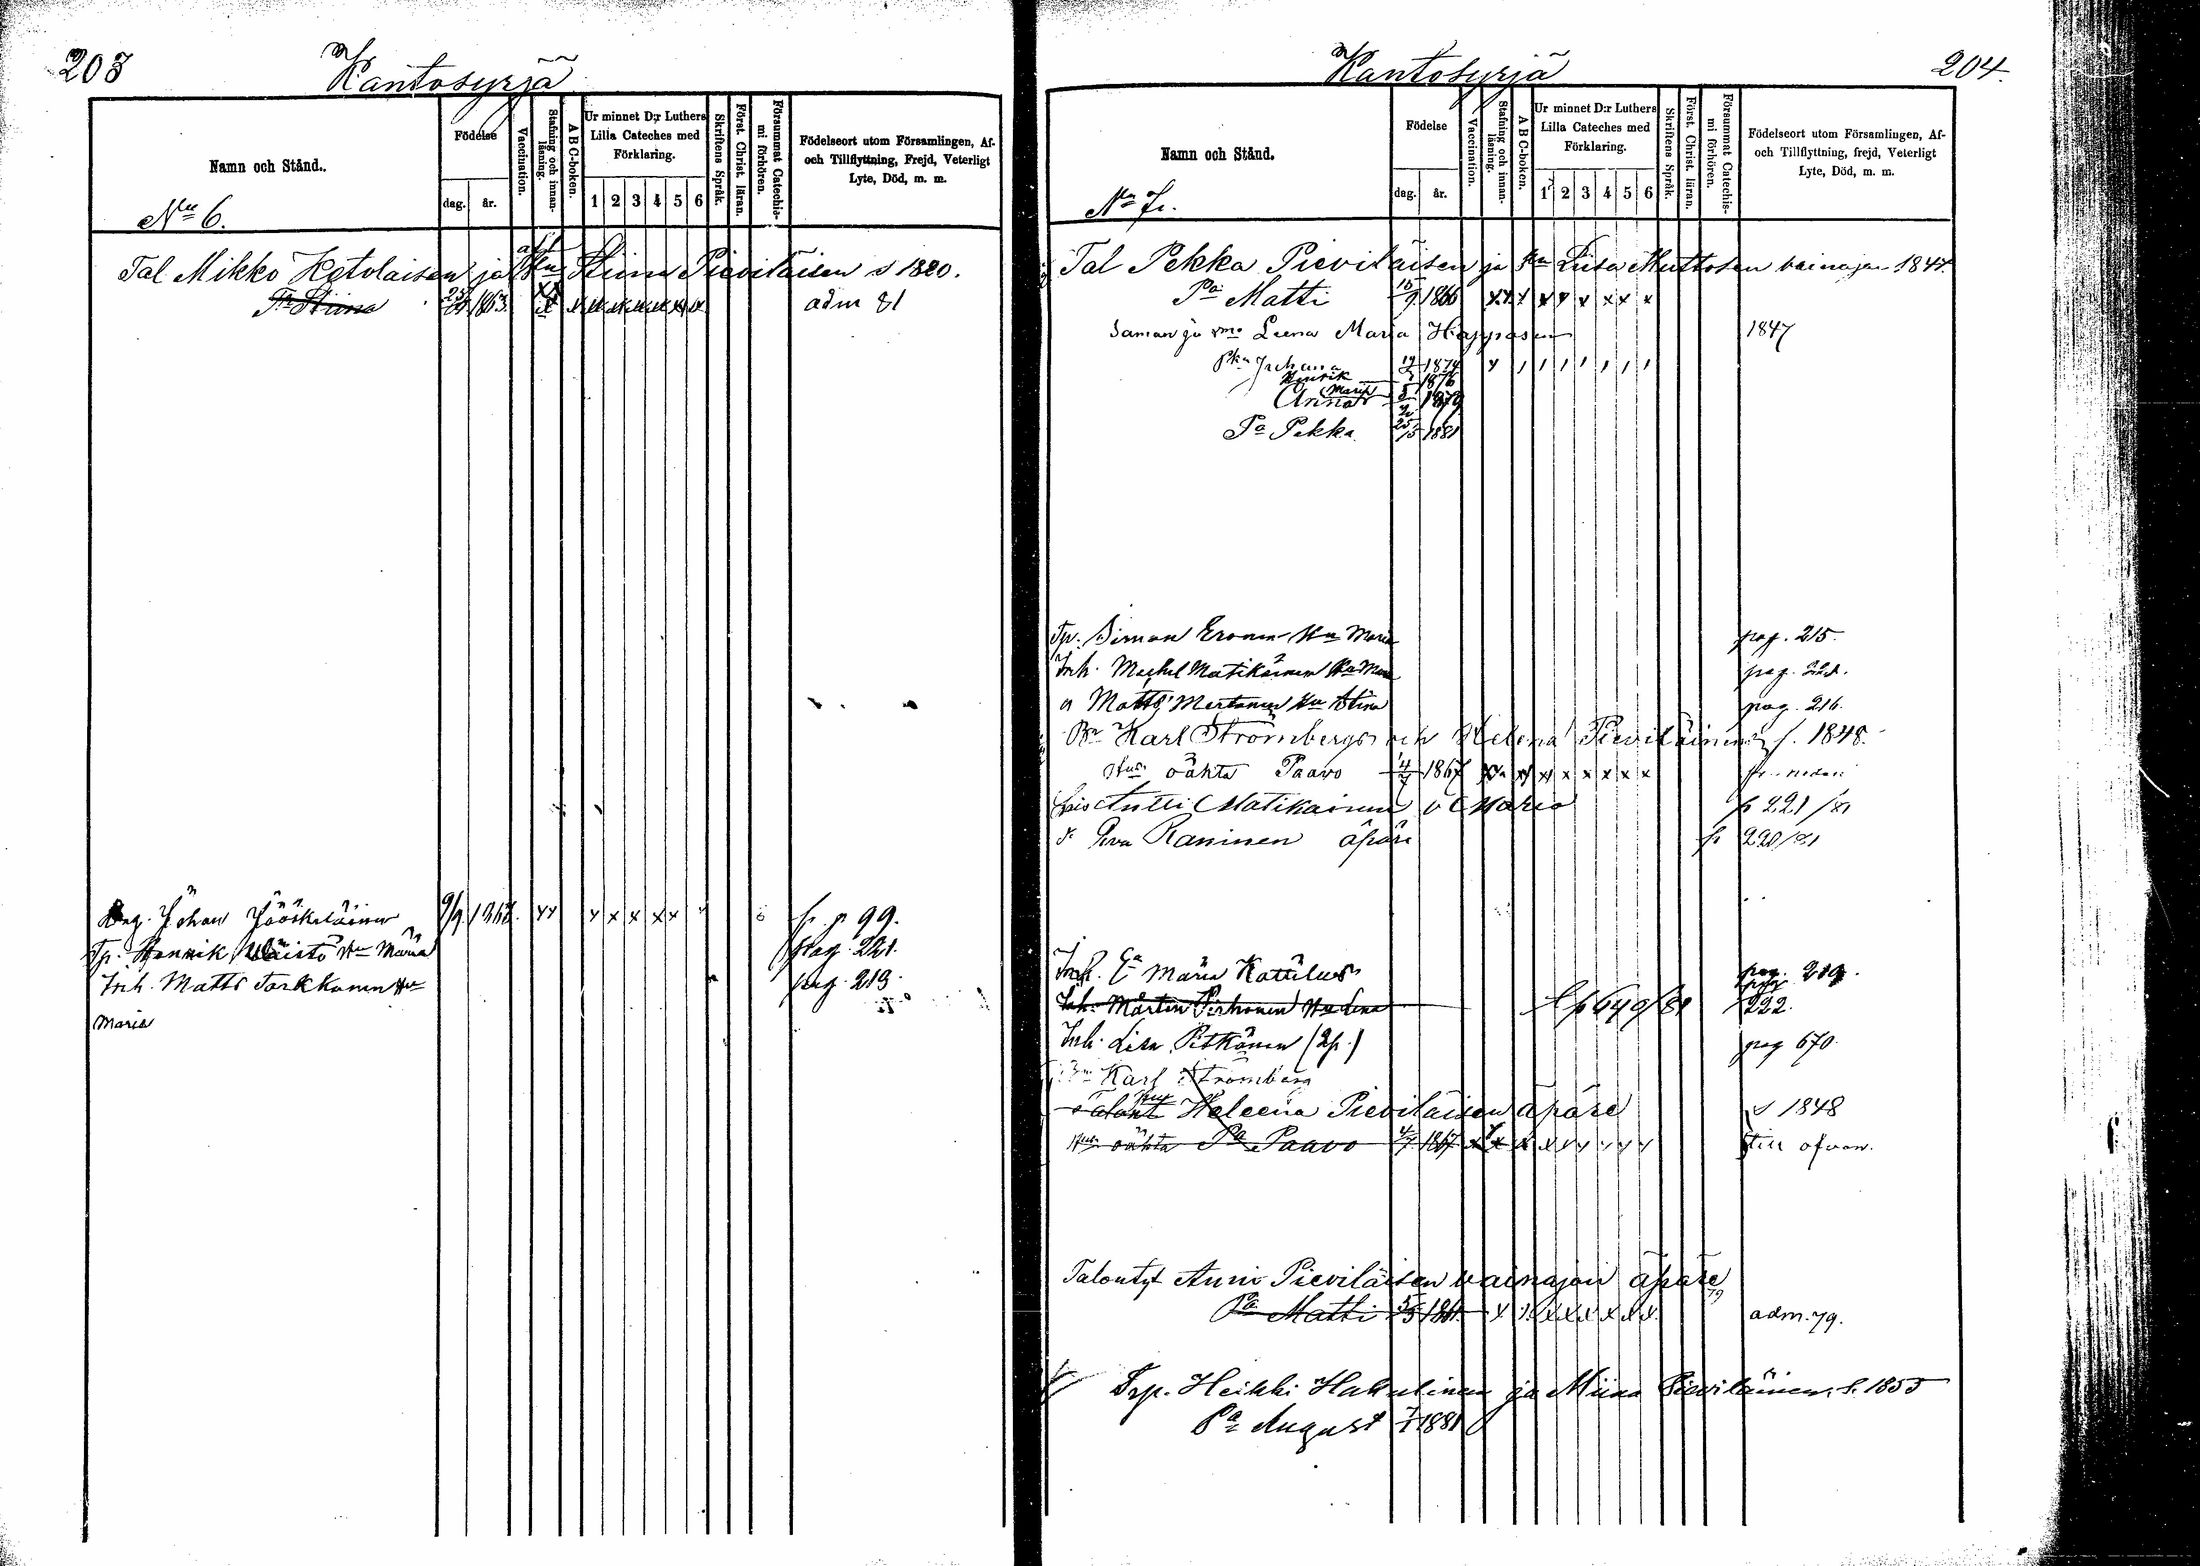 203
Kantosyrjä
Namn och Stånd.
Födelse
dag. år.
Vaccination.
Stafning och innanläsning.
A B C-boken.
Ur minnet D:r Luthers Lilla Cateches med Förklaring.
1 2 3 4 5 6
Skriftens Språk.
Först. Christ. läran.
Försummat Catechismi förhören.
Födelseort utom Församlingen, Af- och Tillflyttning, Frejd, Veterligt Lyte, Död, m. m.
No 6.
Tal Mikko Hotolaisen ja Stiina Pieviläisen s 1820.
Tr Stiina 1863. adm 81
Johan Jääskeläinen 9/9 1862. x x x x x x fr. p 99.
Tp. Henrik Maria pag. 221.
Inh. Matts Tarkkanen Hu pag. 213.
Maria
204.
Kantosyrjä
Namn och Stånd.
Födelse
dag. år.
Vaccination.
Stafning och innanläsning.
A B C-boken.
Ur minnet D:r Luthers Lilla Cateches med Förklaring.
1 2 3 4 5 6
Skriftens Språk.
Först. Christ. läran.
Försummat Catechismi förhören.
Födelseort utom Församlingen, Af- och Tillflyttning, frejd, Veterligt Lyte, Död, m. m.
No 7.
Tal Pekka Pieviläisen ja Liisa Muttosen vainajan 1844.
Pa Matti 1866 x x x x x x x x x
Saman ja vmo Leena Maria Happosen 1847
Juhana 1874
Henrik 1876
Anna Maria 1879
Pa Pekka 25/5 1881
Tp. Simon Eronen Hu Maria pag. 215.
Inh. Michel Matikainen Hu Maria pag. 221.
a Matts Mertanen Hu Stina pag. 216.
Karl Strömbergs och Helena Pieviläinens f. 1848.
oäkta Paavo 4/7 1867 x x x x x x fr. nedan
Antti Matikainen v Maria p 221/81
Eva Raninen äpäre fr 220/81
Inh. Ea Maria Kattilus pag. 219.
Inh. Mårten Pirhonen Hu Lena p 640/81 222.
Inh. Lisa Pitkänen (2p.) pag 670.
Karl Strömberg
Heleena Pieviläisen äpäre s 1848
oäkta Pa Paavo 4/7 1867 till ofvan.
Talontyt Anni Pieviläisen vainajan äpäre
Pa Matti 1861. adm. 79.
Heikki Hakulinen ja Miina Pieviläinen, s. 1855
Pa August 1881